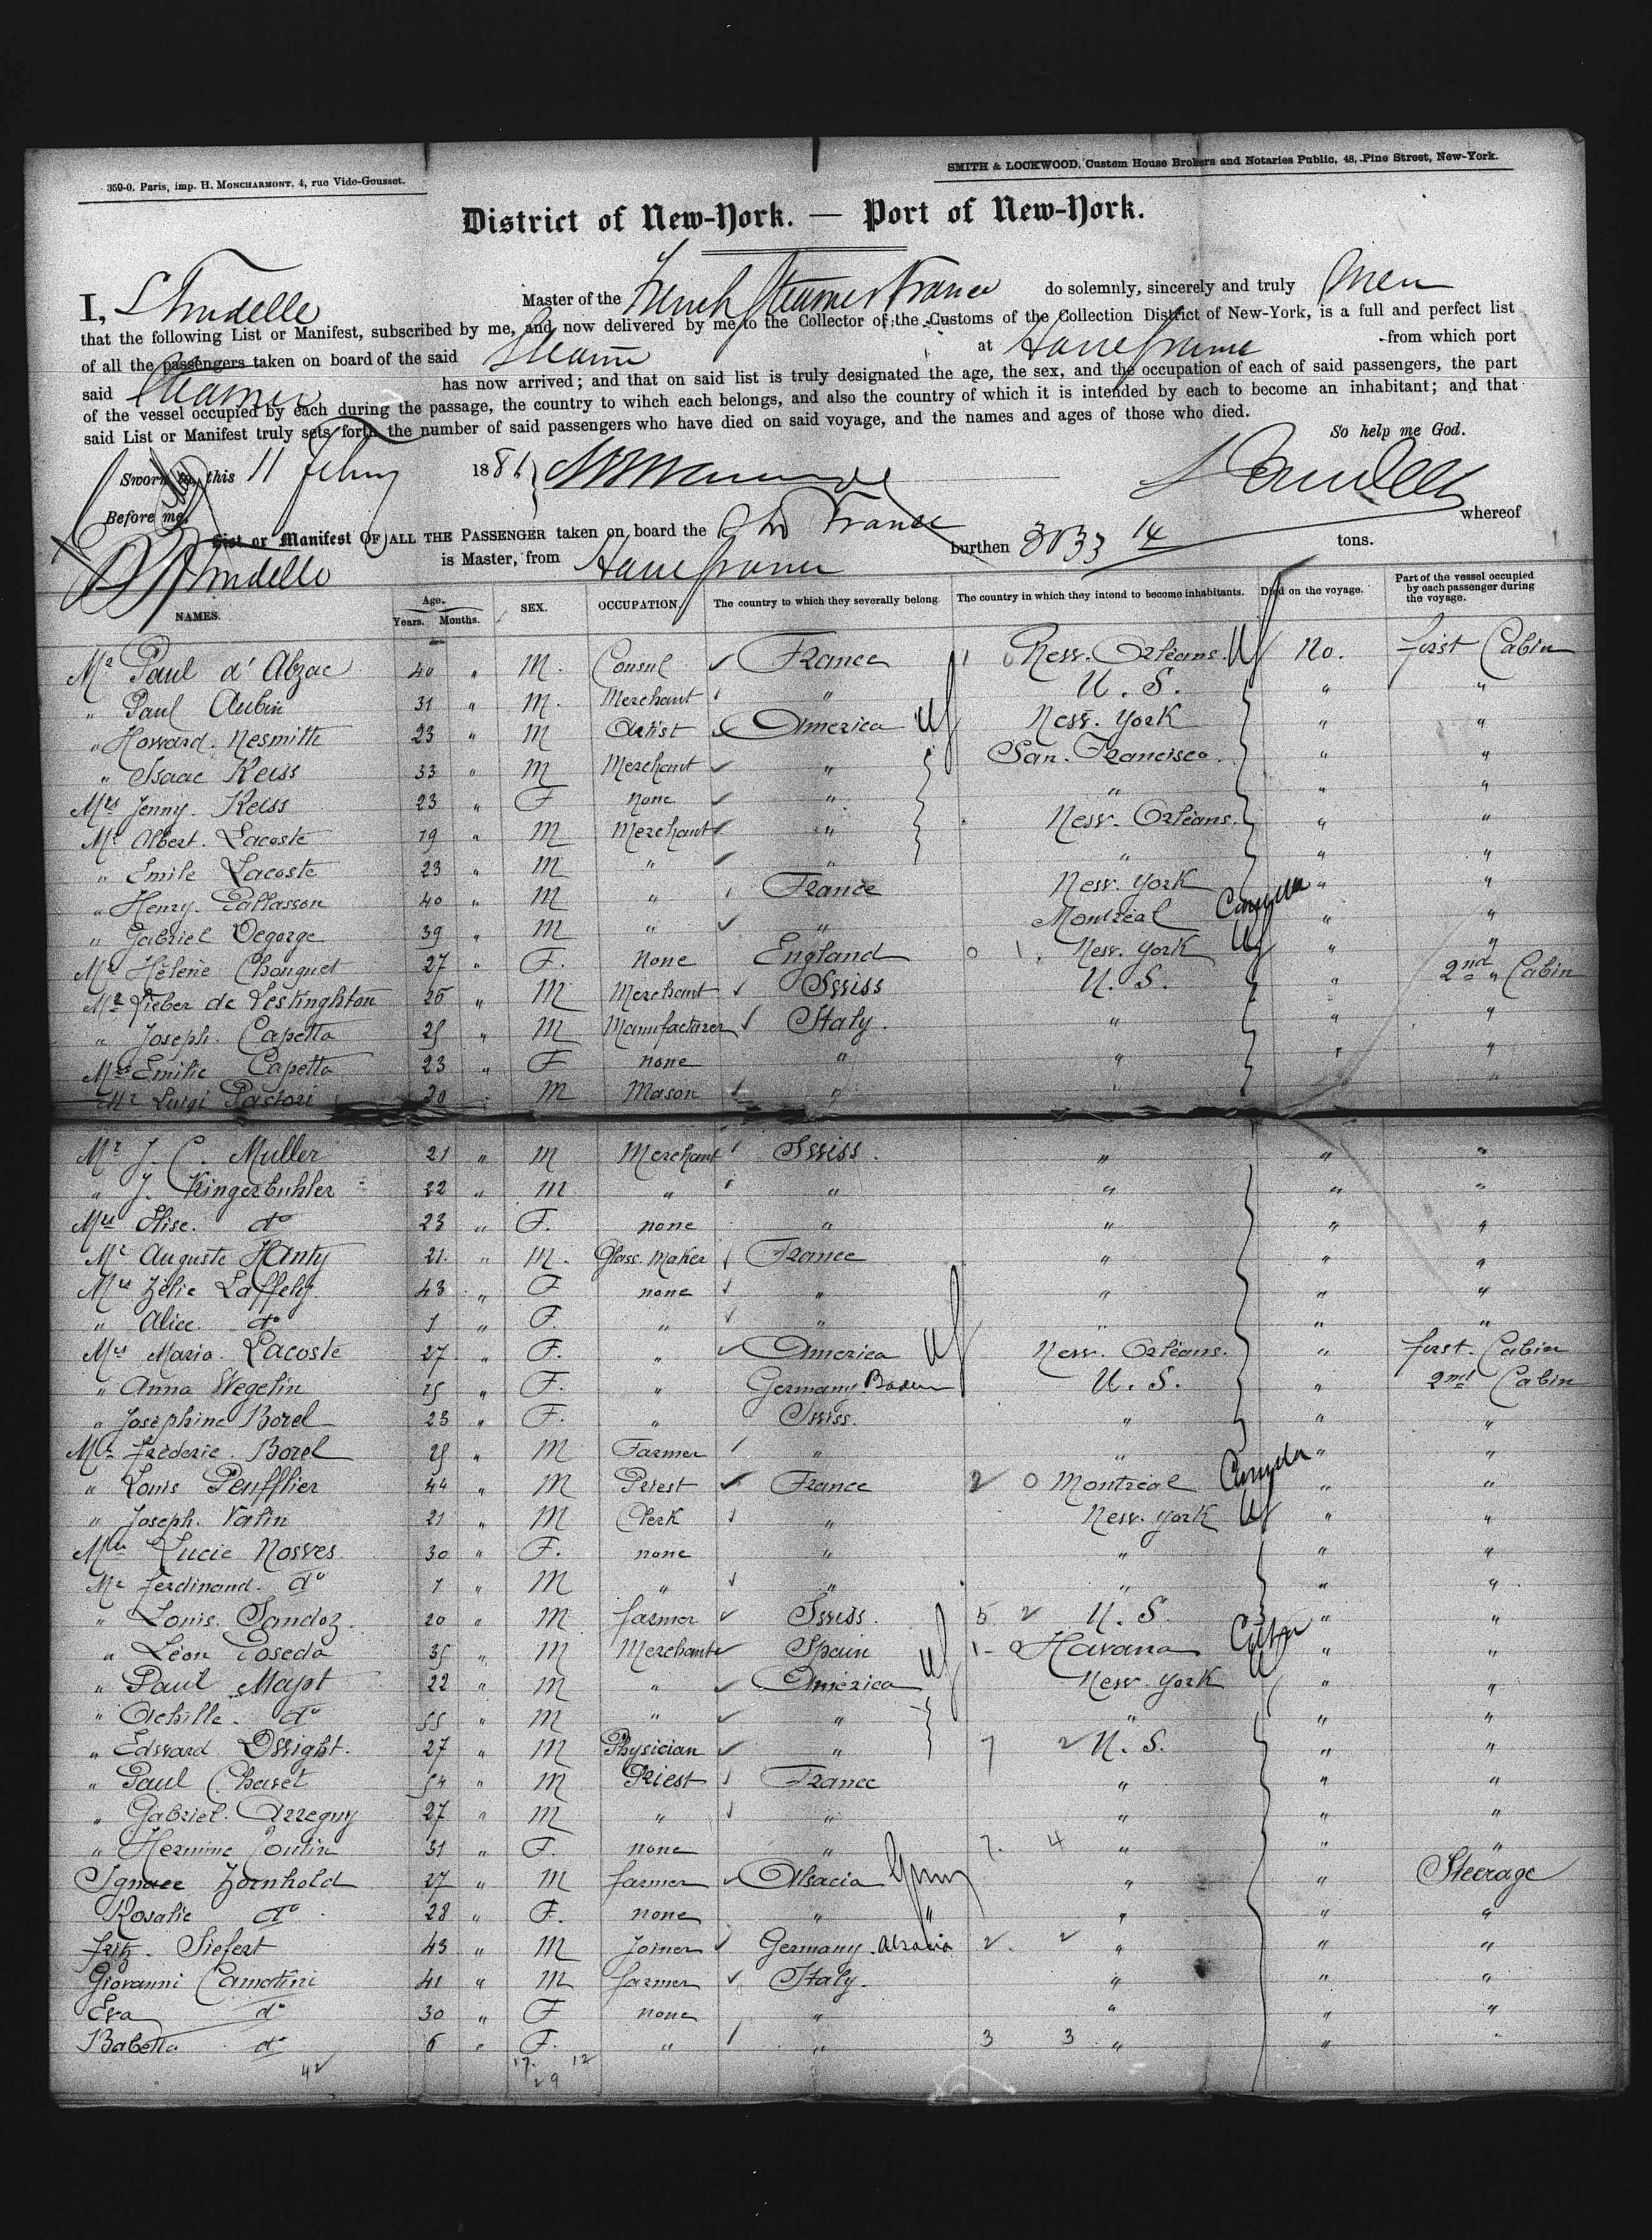 359-0. Paris, imp. H. MONCHARMONT, 4, rue Vide-Gousset.
SMITH & LOCKWOOD, Custom House Brokers and Notaries Public, 48, Pine Street, New-York.
District of New-York. — Port of New-York.
I, L Trudelle Master of the French Steamer France do solemnly, sincerely and truly swear
that the following List or Manifest, subscribed by me, and now delivered by me to the Collector of the Customs of the Collection District of New-York, is a full and perfect list
of all the passengers taken on board of the said Steamer at Havre france from which port
said Steamer has now arrived; and that on said list is truly designated the age, the sex, and the occupation of each of said passengers, the part
of the vessel occupied by each during the passage, the country to wihch each belongs, and also the country of which it is intended by each to become an inhabitant; and that
said List or Manifest truly sets forth the number of said passengers who have died on said voyage, and the names and ages of those who died.
So help me God.
Sworn to, this 11 Feby 1881
Before me, Trudelle
List or Manifest OF ALL THE PASSENGER taken on board the Str France burthen 3033 14 tons. whereof
Trudelle is Master, from Havre france
NAMES. Age. Years. Months. SEX. OCCUPATION. The country to which they severally belong. The country in which they intend to become inhabitants. Died on the voyage. Part of the vessel occupied by each passenger during the voyage.
Mr Paul d'Abzac 40 " M. Consul France 1 0 New. Orléans. No. first Cabin
" Paul Aubin 31 " M. Merchant " U. S. " "
" Howard. Nesmith 23 " M Artist America New. York " "
" Isaac Keiss 33 " M Merchant " San. Francisco. " "
Mrs Jenny. Keiss 23 " F none " " " "
Mr Albert. Lacoste 19 " M Merchant " New. Orléans. " "
" Emile Lacoste 23 " M " " " " "
" Henry. Pallasson 40 " M " France New. York " "
" Gabriel Degorge 39 " M " " Montréal Canada " "
Mrs Hélène Chouquet 27 " F. None England 0 1 New. York " "
Mr Lieber de Lestinghton 26 " M Merchant Swiss U. S. " 2nd Cabin
" Joseph. Capetta 25 " M Manufacturer Italy. " " "
Mrs Emilie Capetta 23 " F none " " " "
Mr Luigi Pastori 20 " M Mason " " "
Mr J. C. Muller 21 " M Merchant Swiss. " " "
" J. Kingerbuhler 22 " M " " " " "
Mrs Elise. do 23 " F. none " " " "
Mr Auguste Hanty 21. " M. Glass. Maker France " " "
Mrs Zélie Laffely 43 " F none " " " "
" Alice. do 1 " F. " " " " "
Mrs Maria. Lacoste 27. " F. " America New. Orléans. " first. Cabin
" Anna Wegelin 25 " F. " Germany Baden U. S. " 2nd Cabin
" Joséphine Borel 23 " F. " Swiss. " " "
Mr Fréderic. Borel 25 " M Farmer " " " "
" Louis Peufflier 44 " M Priest France 2 0 Montréal Canada " "
" Joseph. Valin 21 " M Clerk " New. York " "
Mrs Lucie Nosves 30 " F. none " " " "
Mr Ferdinand. do 7 " M " " " " "
" Louis. Sandoz. 20 " M farmer Swiss. 5 2 U. S. " "
" Léon Poseda 35 " M Merchant Spain 1 - 0 Havana Cuba " "
" Paul Mayot 22 " M " América New. York " "
" Achille. do 55 " M " " " " "
" Edward Dwight. 27 " M Physician " 7 2 U. S. " "
" Paul Chaset 54 " M Priest France " " "
" Gabriel. Arregny 27 " M " " " " "
" Hermine Coutin 31 " F. none " 7. 4 " " "
Ignace Zornhold 27 " M farmer Alsacia Germ " " Steerage
Rosalie do 28 " F. none " " " " "
fritz. Siefert 43 " M Joiner Germany. Alsacia 2. 2 " " "
Giovanni Camatini 41 " M farmer Italy. " " "
Eva do 30 " F none " " " "
Babetta do 6 " F. " " 3 3 " " "
42 17. 12
29